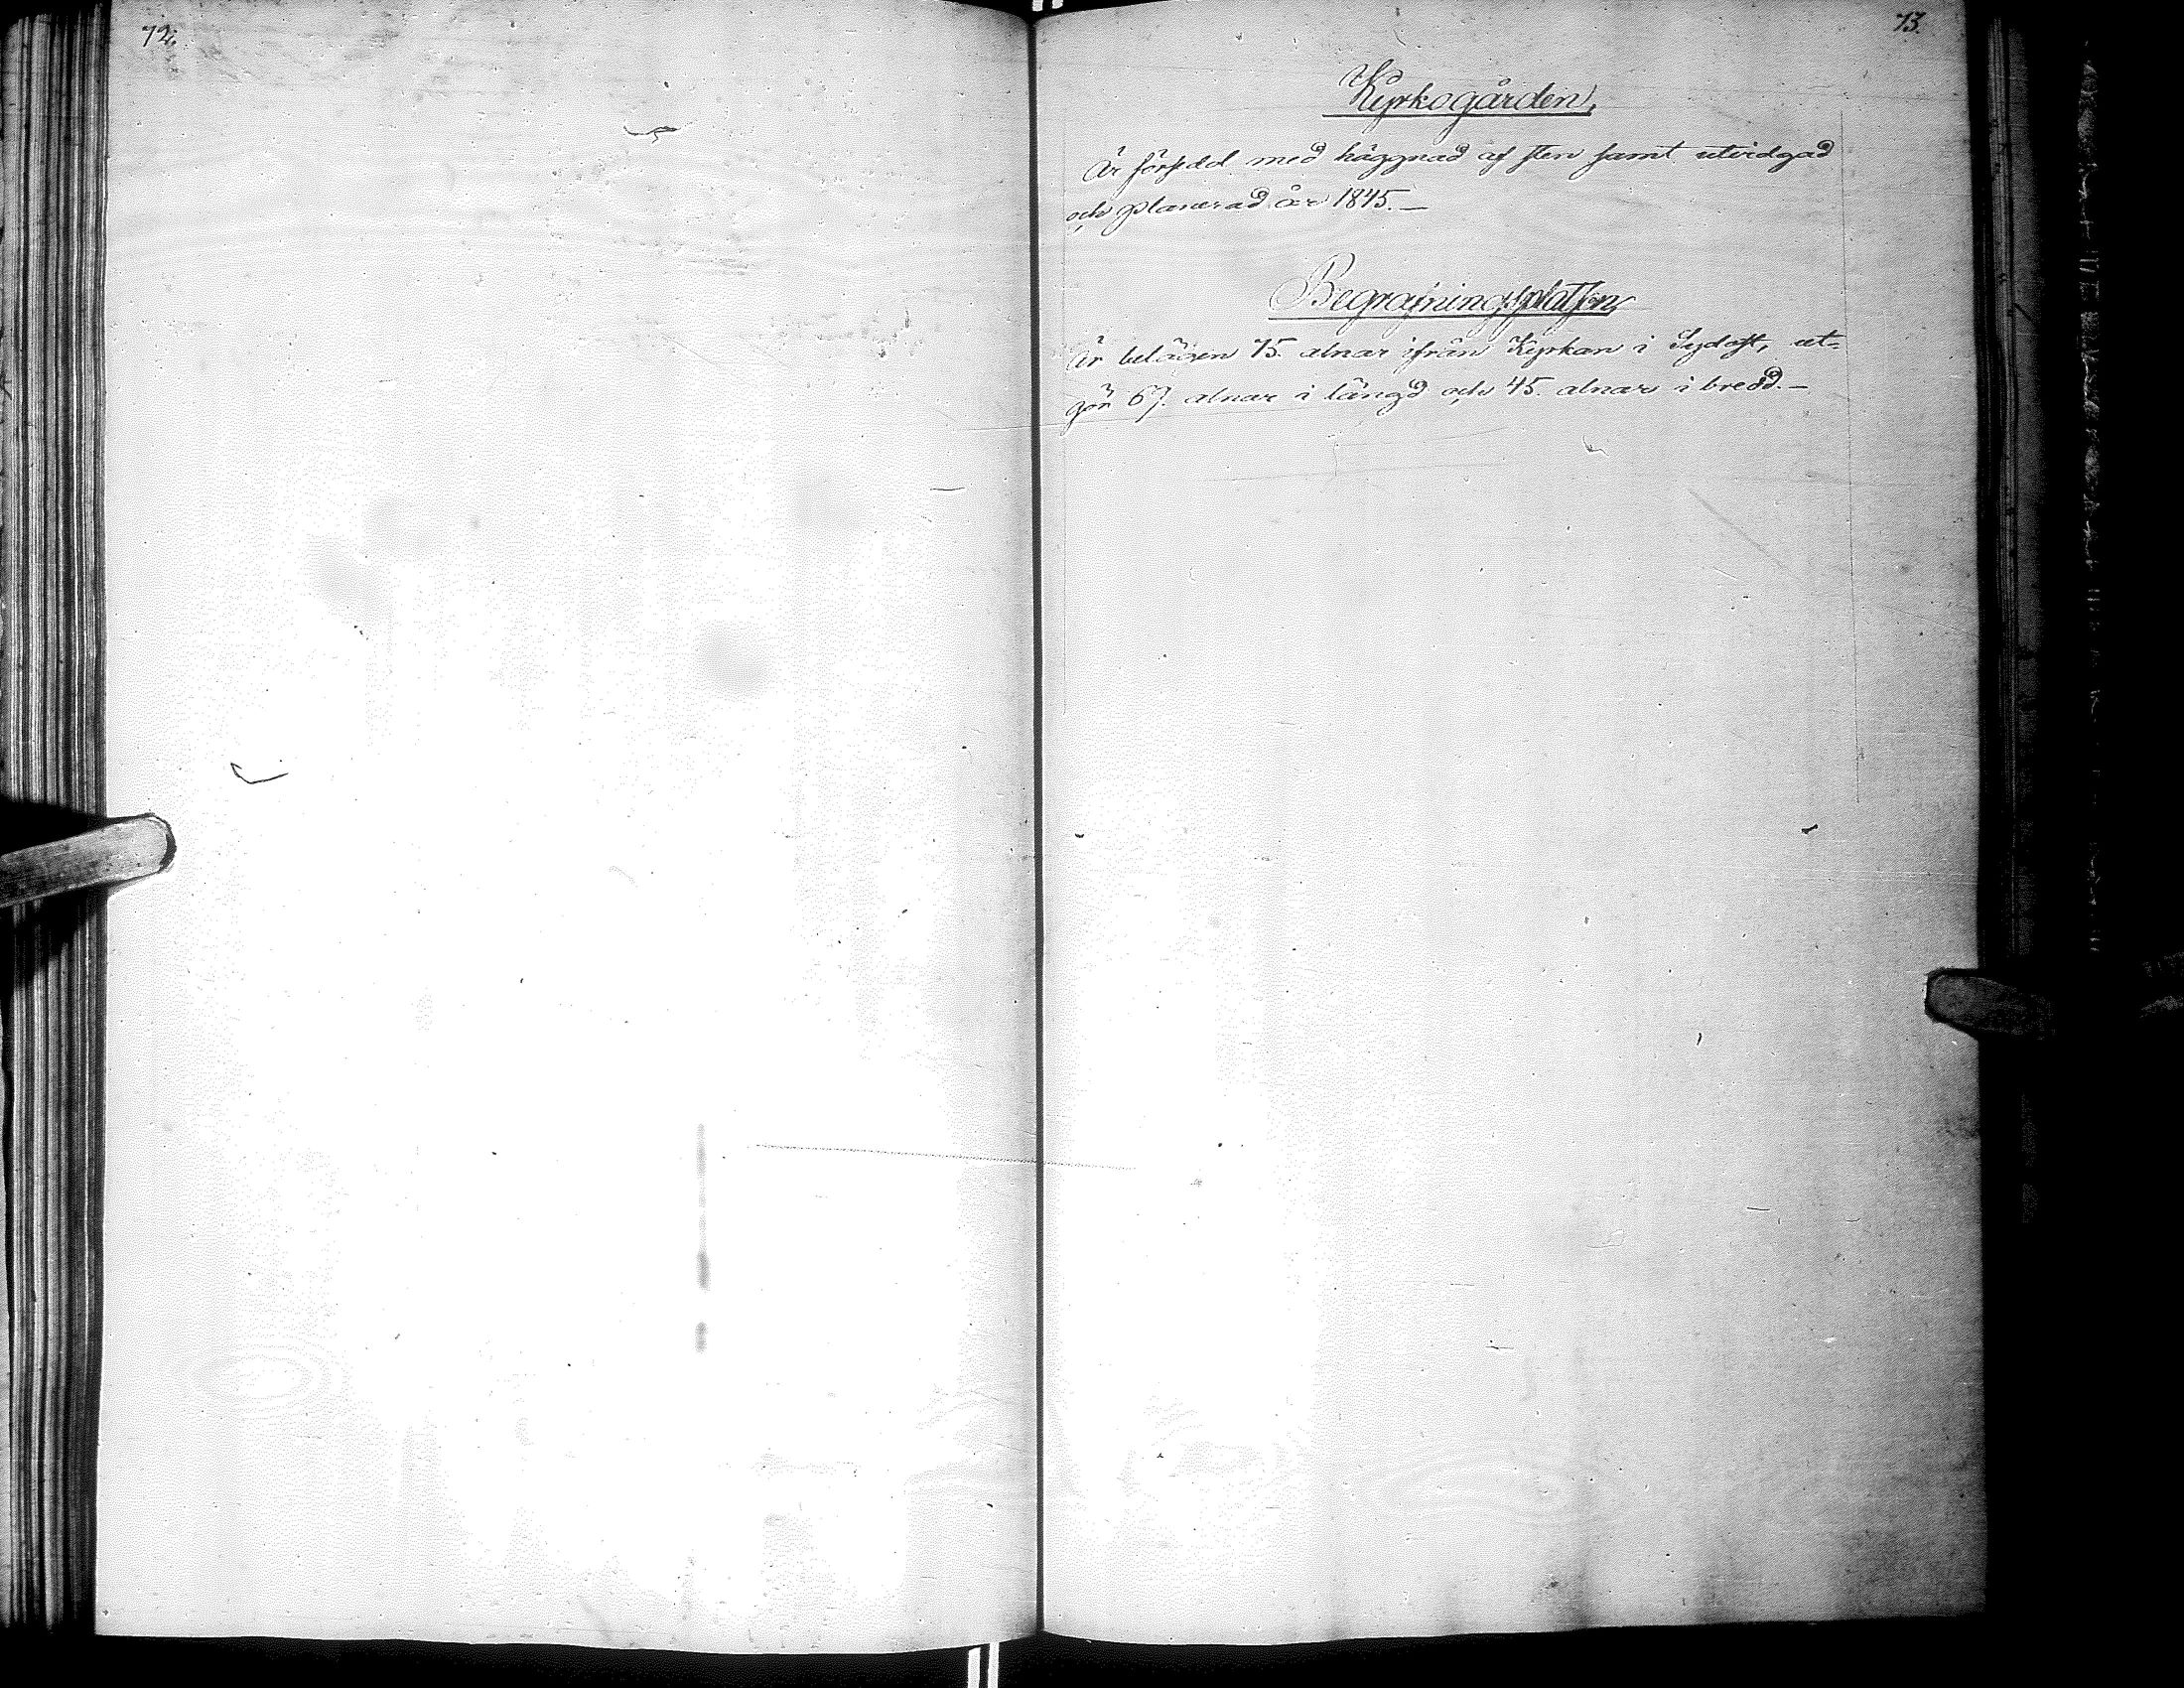 72.
73.
Kyrkogården,
Är försedd med häggnad af sten samt utvidgad
och planerad år 1845.—
Begrafningsplatsen,
Är belägen 75. alnar ifrån Kyrkan i Sydost, ut=
gör 67. alnar i längd och 45. alnar i bredd.—